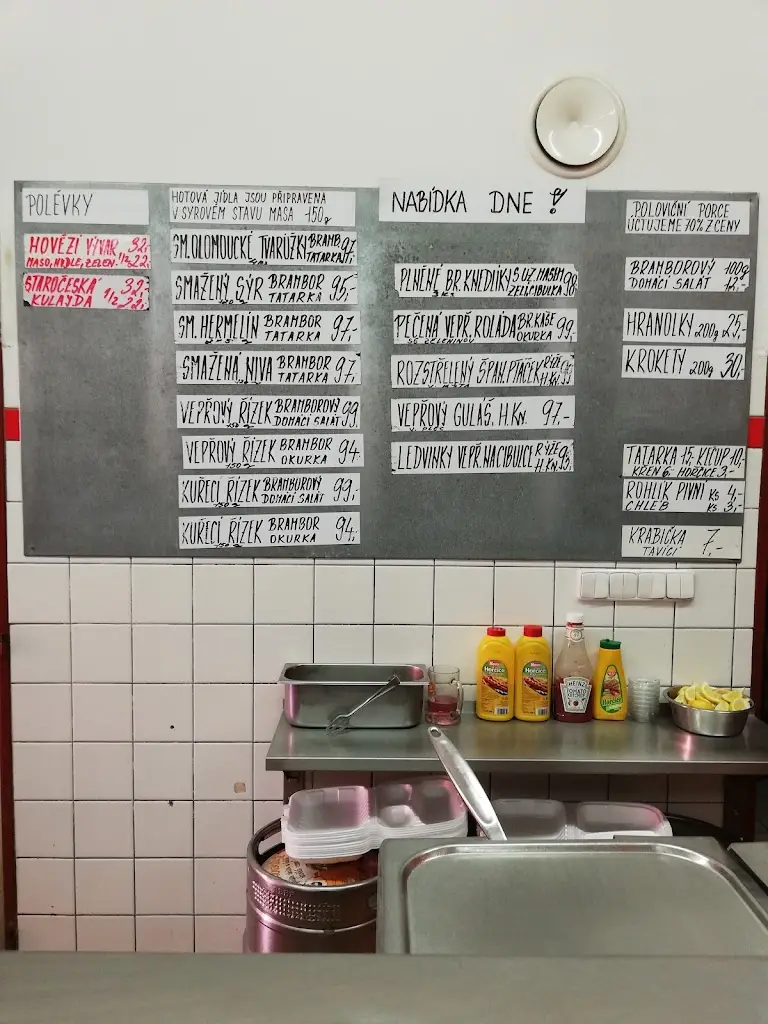 POLÉVKY
HOVĚZÍ VÝVAR 32,-
MASO, NUDLE, ZELEN. 1/2 22,-
STAROČESKÁ 32,-
KULAJDA 1/2 22,-
HOTOVÁ JÍDLA JSOU PŘIPRAVENA
V SYROVÉM STAVU MASA 150g
SM. OLOMOUCKÉ TVARŮŽKY BRAMB. 97,-
TATARKA
SMAŽENÝ SÝR BRAMBOR 95,-
TATARKA
SM. HERMELÍN BRAMBOR 97,-
TATARKA
SMAŽENÁ NIVA BRAMBOR 97,-
TATARKA
VEPŘOVÝ ŘÍZEK BRAMBOROVÝ 99,-
DOMÁCÍ SALÁT
150g
VEPŘOVÝ ŘÍZEK BRAMBOR 94,-
OKURKA
150g
KUŘECÍ ŘÍZEK BRAMBOROVÝ 99,-
DOMÁCÍ SALÁT
150g
KUŘECÍ ŘÍZEK BRAMBOR 94,-
OKURKA
150g
NABÍDKA DNE !
PLNĚNÉ BR. KNEDLÍKY S UZ. MASEM 98,-
ZELÍ CIBULKA
PEČENÁ VEPŘ. ROLÁDA BR. KAŠE 99,-
SE ZELENINOU OKURKA
ROZSTŘELENÝ ŠPAN. PTÁČEK RÝŽE
H.KN.
VEPŘOVÝ GULÁŠ, H.KN. 97,-
LEDVINKY VEPŘ. NA CIBULCE RÝŽE
H.KN.
POLOVIČNÍ PORCE
ÚČTUJEME 70% Z CENY
BRAMBOROVÝ 100g
DOMÁCÍ SALÁT 12,-
HRANOLKY 200g 25,-
KROKETY 200g 30,-
TATARKA 15, KEČUP 10,-
KŘEN 6, HOŘČICE 3,-
ROHLÍK PIVNÍ KS 4,-
CHLÉB KS 3,-
KRABIČKA 7,-
TAVÍCÍ
Hořčice
Hořčice
HEINZ
TOMATO
KETCHUP